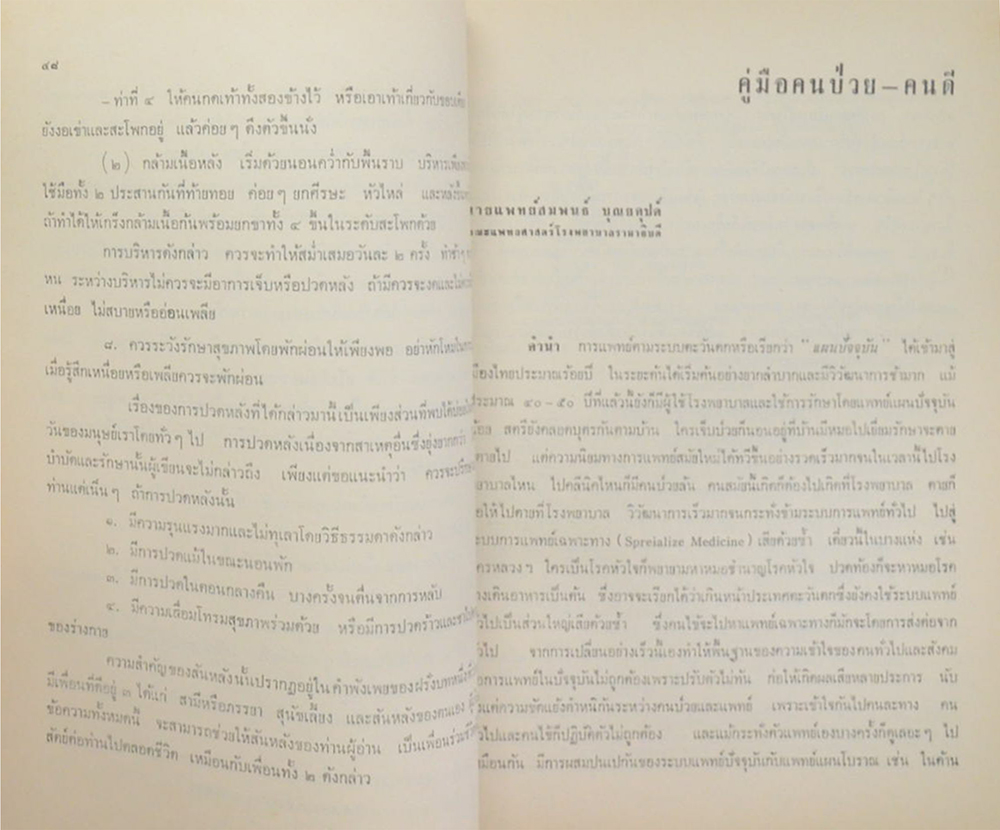 ๔๘
– ท่าที่ ๔ ให้คนกดเท้าทั้งสองข้างไว้ หรือเอาเท้าเกี่ยวกับขอบเตียง
ยังงอเข่าและสะโพกอยู่ แล้วค่อย ๆ ดึงตัวขึ้นนั่ง
(๒) กล้ามเนื้อหลัง เริ่มด้วยนอนคว่ำกับพื้นราบ บริหารเพียง
ใช้มือทั้ง ๒ ประสานกันที่ท้ายทอย ค่อย ๆ ยกศีรษะ หัวไหล่ และหลังขึ้น
ถ้าทำได้ให้เกร็งกล้ามเนื้อก้นพร้อมยกขาทั้ง ๔ ขึ้นในระดับสะโพกด้วย
การบริหารดังกล่าว ควรจะทำให้สม่ำเสมอวันละ ๒ ครั้ง ทำซ้ำๆ
หน ระหว่างบริหารไม่ควรจะมีอาการเจ็บหรือปวดหลัง ถ้ามีควรจะงดและไม่
เหนื่อย ไม่สบายหรืออ่อนเพลีย
๘. ควรระวังรักษาสุขภาพโดยพักผ่อนให้เพียงพอ อย่าหักโหมใน
เมื่อรู้สึกเหนื่อยหรือเพลียควรจะพักผ่อน
เรื่องของการปวดหลังที่ได้กล่าวมานี้เป็นเพียงส่วนที่พบได้บ่อย
วันของมนุษย์เราโดยทั่ว ๆ ไป การปวดหลังเนื่องจากสาเหตุอื่นซึ่งยุ่งยากกว่า
บำบัดและรักษานั้นผู้เขียนจะไม่กล่าวถึง เพียงแต่ขอแนะนำว่า ควรจะปรึกษา
ท่านแต่เนิ่น ๆ ถ้าการปวดหลังนั้น
๑. มีความรุนแรงมากและไม่ทุเลาโดยวิธีธรรมดาดังกล่าว
๒. มีการปวดแม้ในขณะนอนพัก
๓. มีการปวดในตอนกลางคืน บางครั้งจนตื่นจากการหลับ
๔. มีความเสื่อมโทรมสุขภาพร่วมด้วย หรือมีการปวดร้าวและชา
ของร่างกาย
ความสำคัญของสันหลังนั้นปรากฏอยู่ในคำพังเพยของฝรั่งบทหนึ่ง
มีเพื่อนที่ดีอยู่ ๓ ได้แก่ สามีหรือภรรยา สุนัขเลี้ยง และสันหลังของตนเอง
ข้อความทั้งหมดนี้ จะสามารถช่วยให้สันหลังของท่านผู้อ่าน เป็นเพื่อนร่วม
สัตย์ต่อท่านไปตลอดชีวิต เหมือนกับเพื่อนทั้ง ๒ ดังกล่าว
คู่มือคนป่วย – คนดี
นายแพทย์สมพนธ์ บุณยคุปต์
คณะแพทยศาสตร์โรงพยาบาลรามาธิบดี
คำนำ การแพทย์ตามระบบตะวันตกหรือเรียกว่า "แผนปัจจุบัน" ได้เข้ามาสู่
เมืองไทยประมาณร้อยปี ในระยะต้นได้เริ่มต้นอย่างยากลำบากและมีวิวัฒนาการช้ามาก แม้
ประมาณ ๔๐–๕๐ ปีที่แล้วนี้ยังก็มีผู้ใช้โรงพยาบาลและใช้การรักษาโดยแพทย์แผนปัจจุบัน
น้อย สตรียังคลอดบุตรกันตามบ้าน ใครเจ็บป่วยก็นอนอยู่ที่บ้านมีหมอไปเยี่ยมรักษาจะตาย
ตายไป แต่ความนิยมทางการแพทย์สมัยใหม่ได้ทวีขึ้นอย่างรวดเร็วมากจนในเวลานี้ไปโรง
พยาบาลไหน ไปคลีนิคไหนก็มีคนป่วยล้น คนสมัยนี้เกิดก็ต้องไปเกิดที่โรงพยาบาล ตายก็
ขอให้ไปตายที่โรงพยาบาล วิวัฒนาการเร็วมากจนกระทั่งข้ามระบบการแพทย์ทั่วไป ไปสู่
ระบบการแพทย์เฉพาะทาง (Spreialize Medicine) เสียด้วยซ้ำ เดี๋ยวนี้ในบางแห่ง เช่น
นครหลวงฯ ใครเป็นโรคหัวใจก็พยายามหาหมอชำนาญโรคหัวใจ ปวดท้องก็จะหาหมอโรค
ทางเดินอาหารเป็นต้น ซึ่งอาจจะเรียกได้ว่าเกินหน้าประเทศตะวันตกซึ่งยังคงใช้ระบบแพทย์
ทั่วไปเป็นส่วนใหญ่เสียด้วยซ้ำ ซึ่งคนไข้จะไปหาแพทย์เฉพาะทางก็มักจะโดยการส่งต่อจาก
ทั่วไป จากการเปลี่ยนอย่างเร็วนี้เองทำให้พื้นฐานของความเข้าใจของคนทั่วไปและสังคม
ต่อการแพทย์ในปัจจุบันไม่ถูกต้องเพราะปรับตัวไม่ทัน ก่อให้เกิดผลเสียหลายประการ นับ
ตั้งแต่ความขัดแย้งตำหนิกันระหว่างคนป่วยและแพทย์ เพราะเข้าใจกันไปคนละทาง คน
ทั่วไปและคนไข้ก็ปฏิบัติตัวไม่ถูกต้อง และแม้กระทั่งตัวแพทย์เองบางครั้งก็ดูเลอะ ๆ ไป
เหมือนกัน มีการผสมปนเปกันของระบบแพทย์ปัจจุบันกับแพทย์แผนโบราณ เช่น ในด้าน